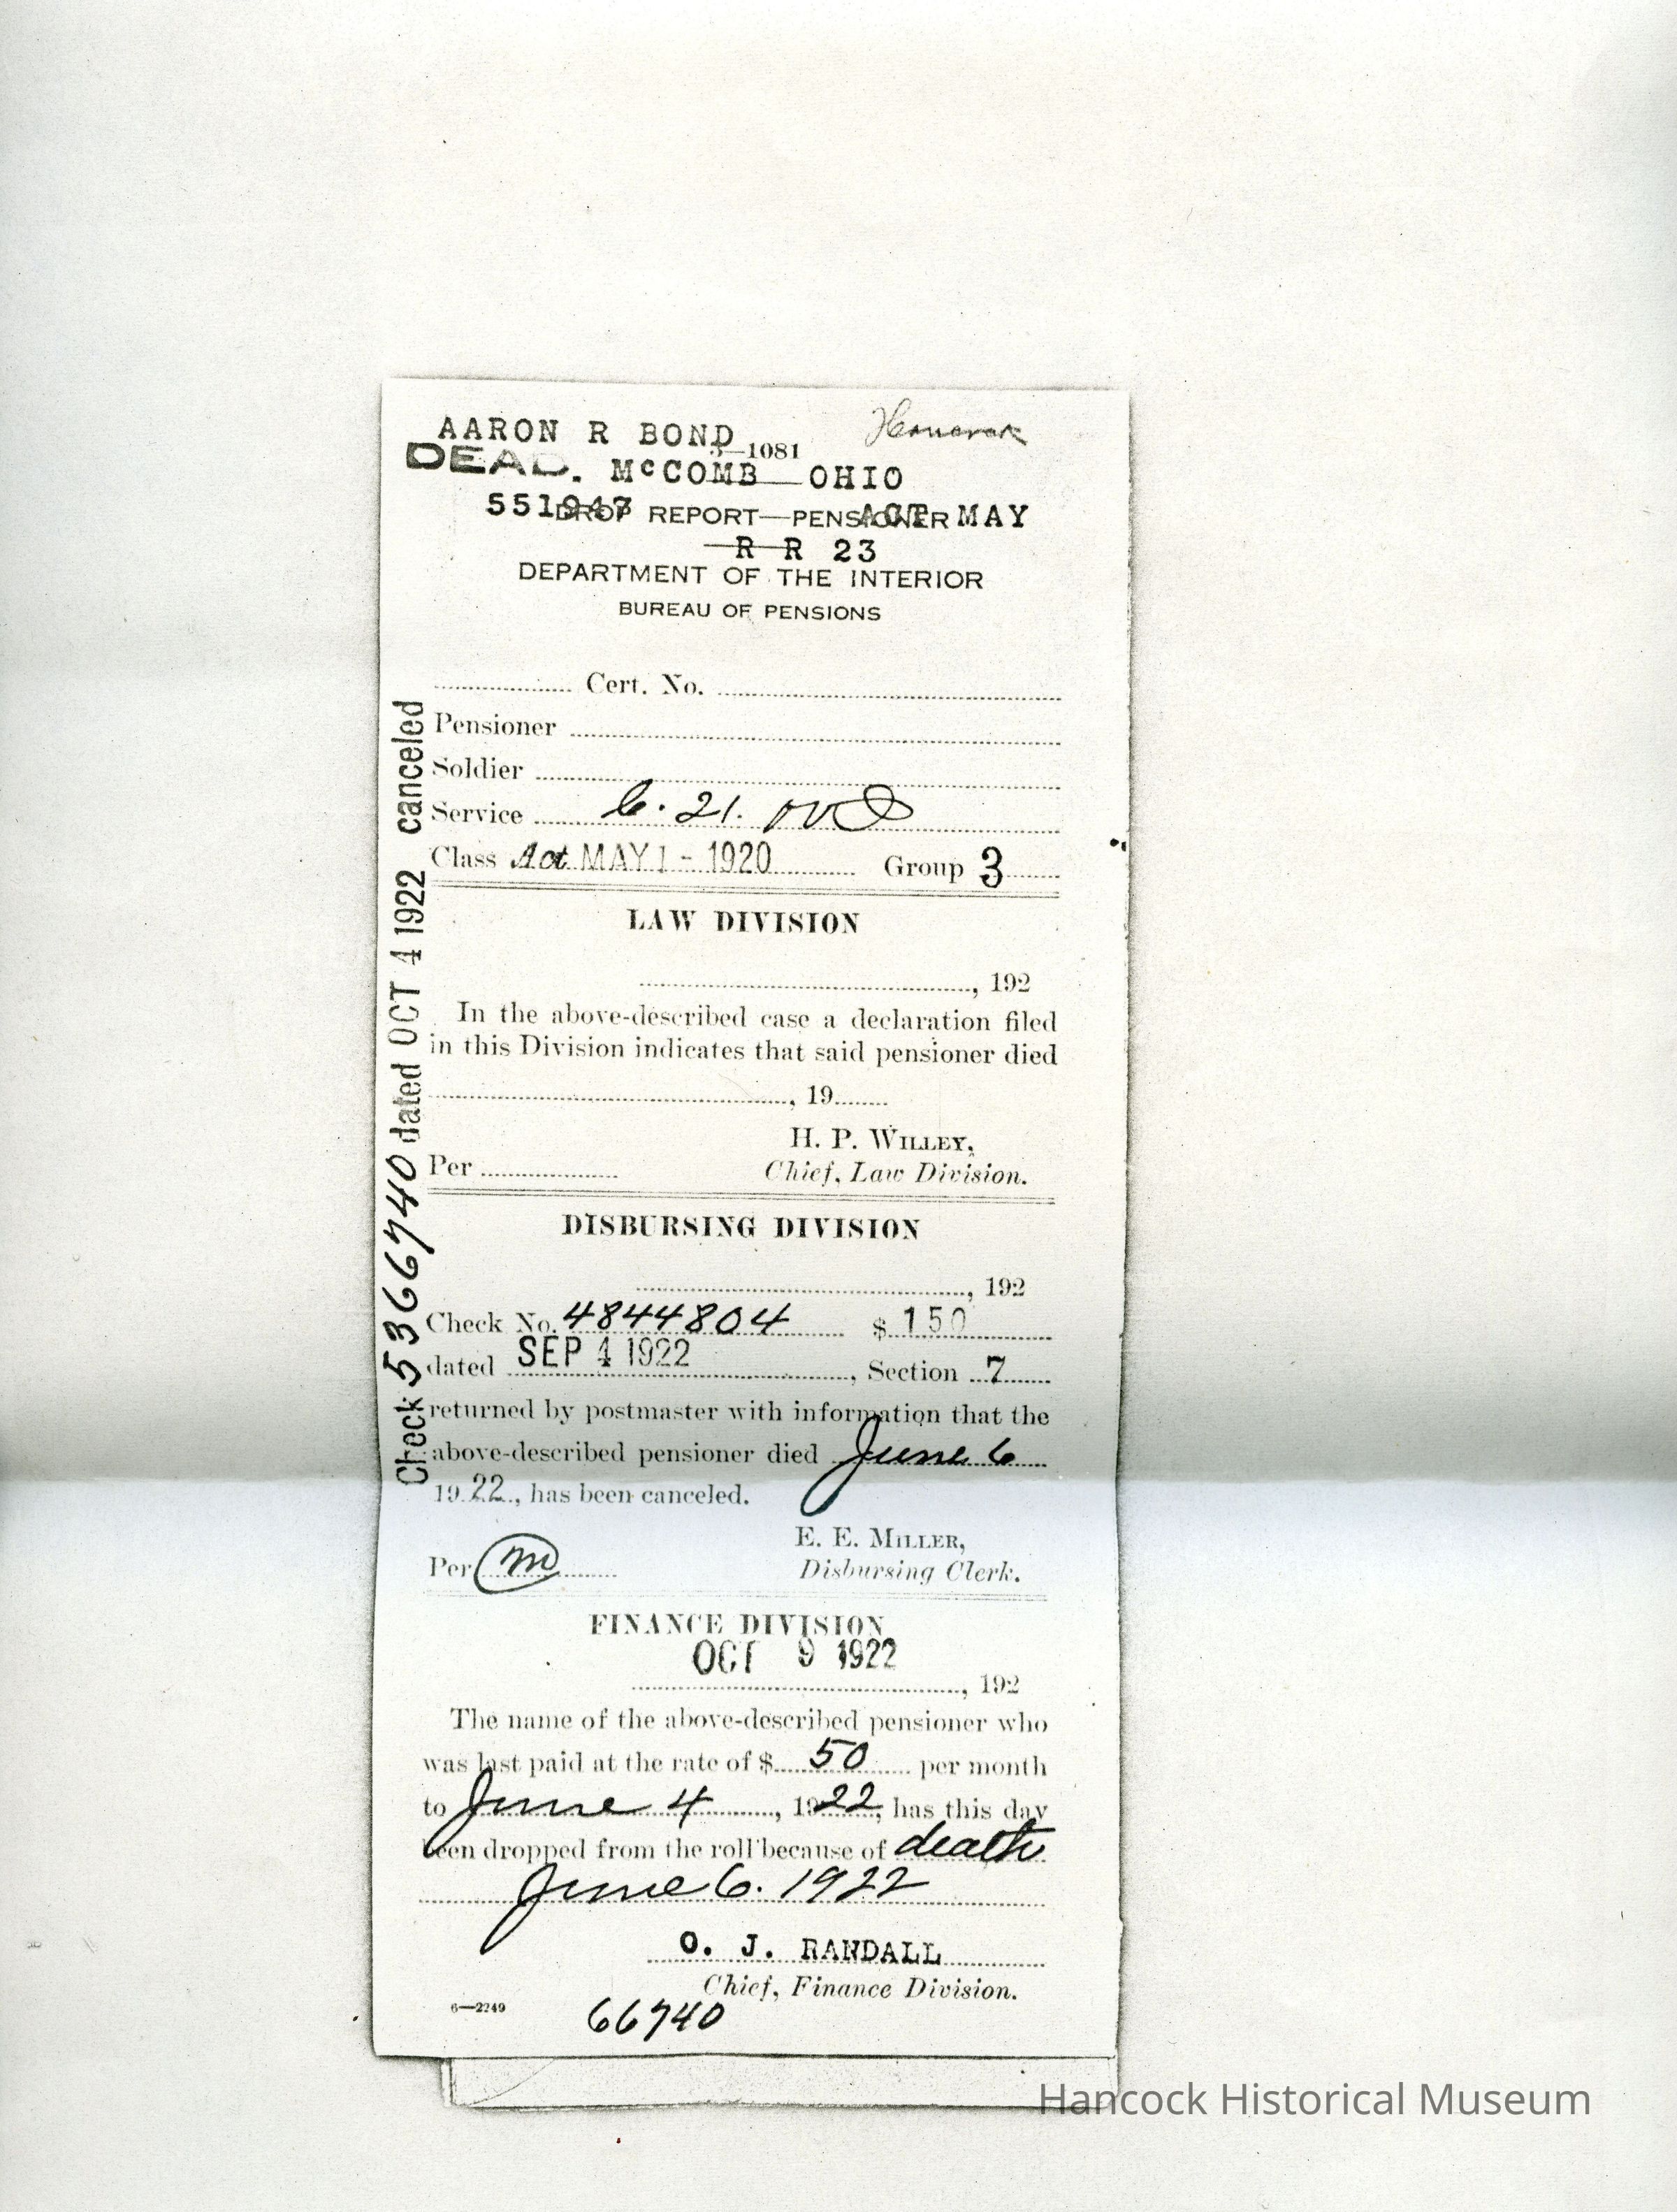 AARON R BOND
Hancock
3—1081
DEAD. McCOMB OHIO
551947 DROP REPORT—PENSIONER ACT MAY
R R 23
DEPARTMENT OF THE INTERIOR
BUREAU OF PENSIONS
Cert. No.
Pensioner
Soldier
Service 6. 21. OVI
Class Act MAY 1 - 1920 Group 3
LAW DIVISION
, 192
In the above-described case a declaration filed
in this Division indicates that said pensioner died
, 19
H. P. WILLEY,
Per Chief, Law Division.
DISBURSING DIVISION
, 192
Check No. 4844804 $ 150
dated SEP 4 1922, Section 7
returned by postmaster with information that the
above-described pensioner died June 6
1922, has been canceled.
E. E. MILLER,
Per m Disbursing Clerk.
FINANCE DIVISION
OCT 9 1922
, 192
The name of the above-described pensioner who
was last paid at the rate of $ 50 per month
to June 4, 1922, has this day
been dropped from the roll because of death
June 6. 1922
O. J. RANDALL
Chief, Finance Division.
6—2249
66740
Check 5366740 dated OCT 4 1922 canceled
Hancock Historical Museum